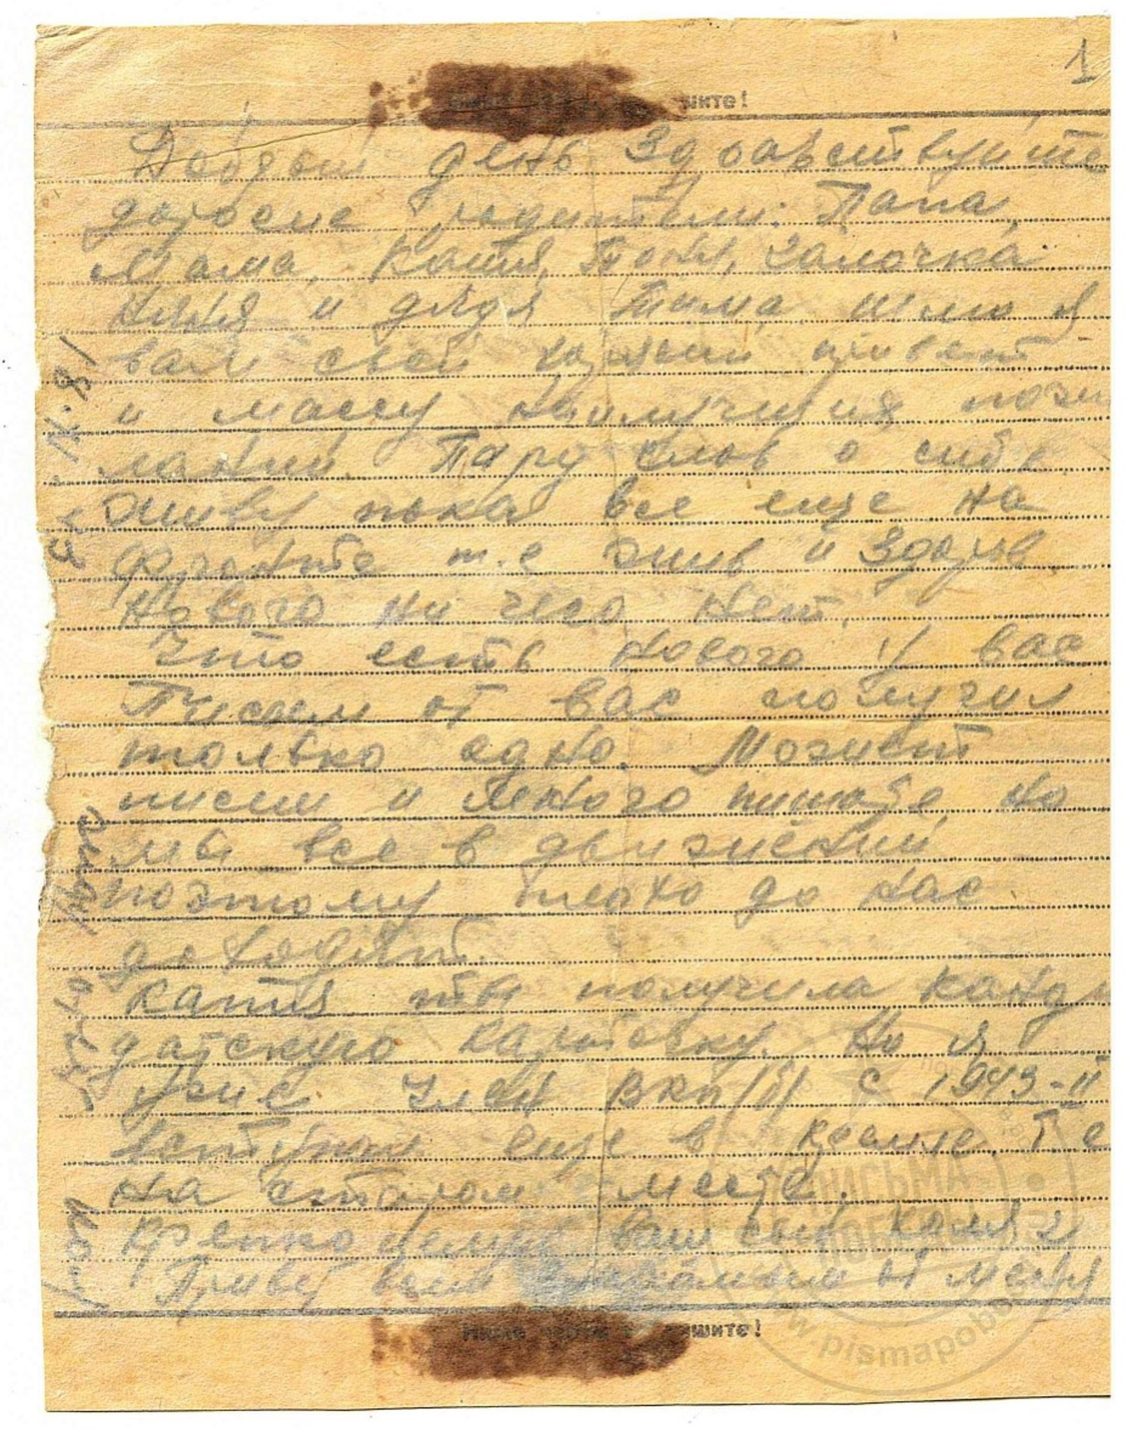 1
шите!
Добрый день Здравствуйте
дорогие родители: Папа,
Мама, Катя, Тоня, Галочка
няня и дядя Тима шлю я
вам свой горячий привет
и массу наилучших поже
ланий. Пару слов о себе
живу пока все еще на
фронте т.е жив и здоров.
Нового ни чего нет.
Что есть нового у вас
Писем от вас получил
только одно. Может
писем и много пишите, но
мы все в движении
поэтому плохо до нас
доходят.
Катя ты получила канди
датскую карточку. Но я
уже член ВКП(б) с 1943-
вступил еще в Т е
на старом месте.
Крепко целую ваш сын Коля
всем знакомым от меня
Ниже черты не пишите!
ПИСЬМА
www.pismapobedy